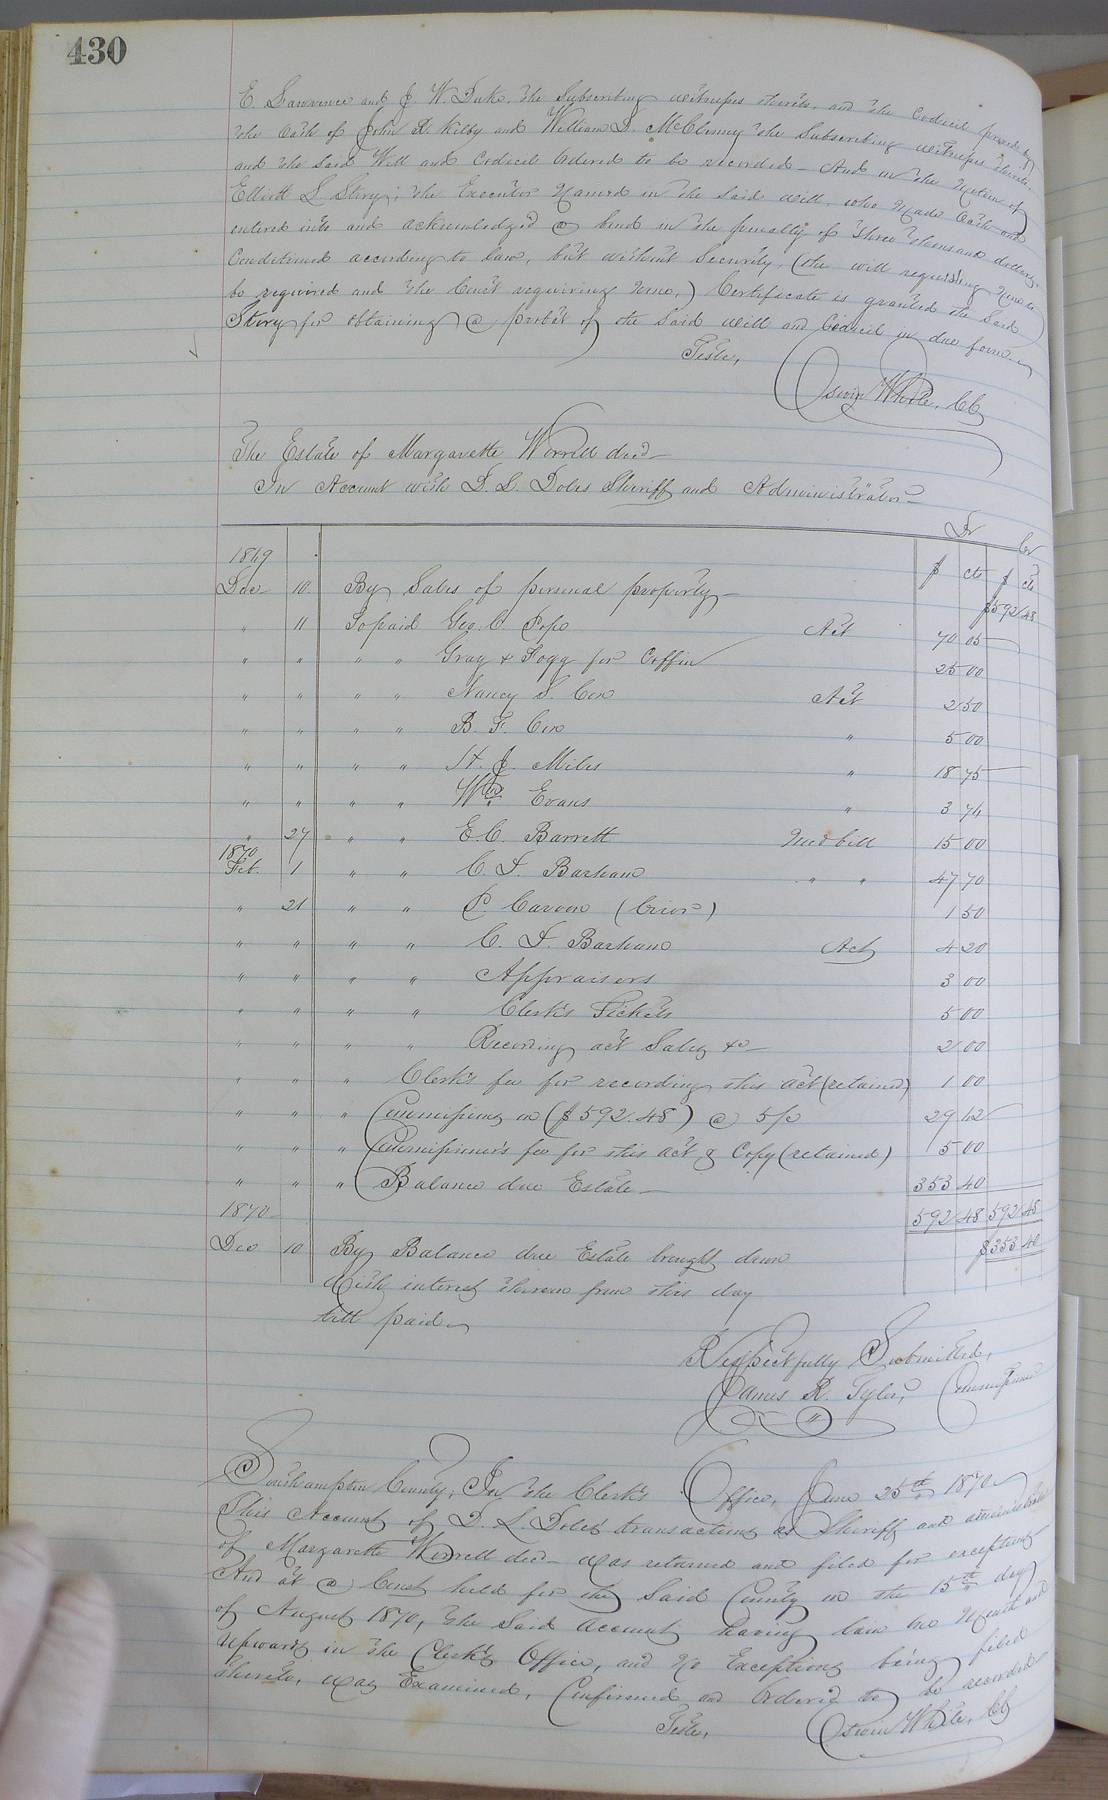 430
E. Lawrence and J. W. Duke, the Subscribing witnesses thereto, and the Codicil proved by
the Oath of John R. Kilby and William S. McClenny the Subscribing witnesses thereto
and the Said Will and Codicil Ordered to be recorded — And on the Motion of
Elliott L Story, the Executor Named in the Said will, who Made Oath and
entered into and acknowledged a bond in the penalty of three thousand dollars
Conditioned according to law, but without Security, (the will requesting None to
be required and the Court requiring None,) Certificate is granted the Said
Story for obtaining a probat of the Said will and Codicil in due form.
Teste,
White, CC
The Estate of Margarette Worrell decd —
In Account with D. L. Doles Sheriff and Administrator —
Dr Cr
1869 $ cts $ cts
Dec 10 By Sales of personal property — $592 48
" 11 To paid Geo. C. Pope Act 70 05
" " " " Gray & Fogg for Coffin 25 00
" " " " Nancy S. Cox Act 2 50
" " " " B. F. Cox " 5 00
" " " " H. J. Miles " 18 75
" " " " Wm Evans " 3 74
" 27 " " E. C. Barrett Med bill 15 00
1870
Feb. 1 " " C. F. Barham " " 47 70
" 21 " " P. (Crier) 1 50
" " " " C. F. Barham Act 4 20
" " " " Appraisers 3 00
" " " " Clerk's Tickets 5 00
" " " " Recording act Sales &c — 2 00
" " " Clerk's fee for recording this act (retained) 1 00
" " " Commissions on ($592.48) @ 5 p/c 29 62
" " " Commissioner's fee for this act & Copy (retained) 5 00
" " " Balance due Estate — 353 40
1870 592 48 592 48
Dec 10 By Balance due Estate brought down $353 40
With interest thereon from this day
till paid
Respectfully Submitted,
James R. Tyler, Commissioner
Southampton County, In the Clerk's Office, June 25th 1870
This Account of D. L. Doles' transactions as Sheriff and administrator
of Margarette Worrell decd — was returned and filed for exceptions
And at a Court held for the Said County on the 15th day
of August 1870, the Said Account having lain one Month and
upwards in the Clerk's Office, and No Exceptions being filed
thereto, was Examined, Confirmed and Ordered to be recorded
Teste, White, CC